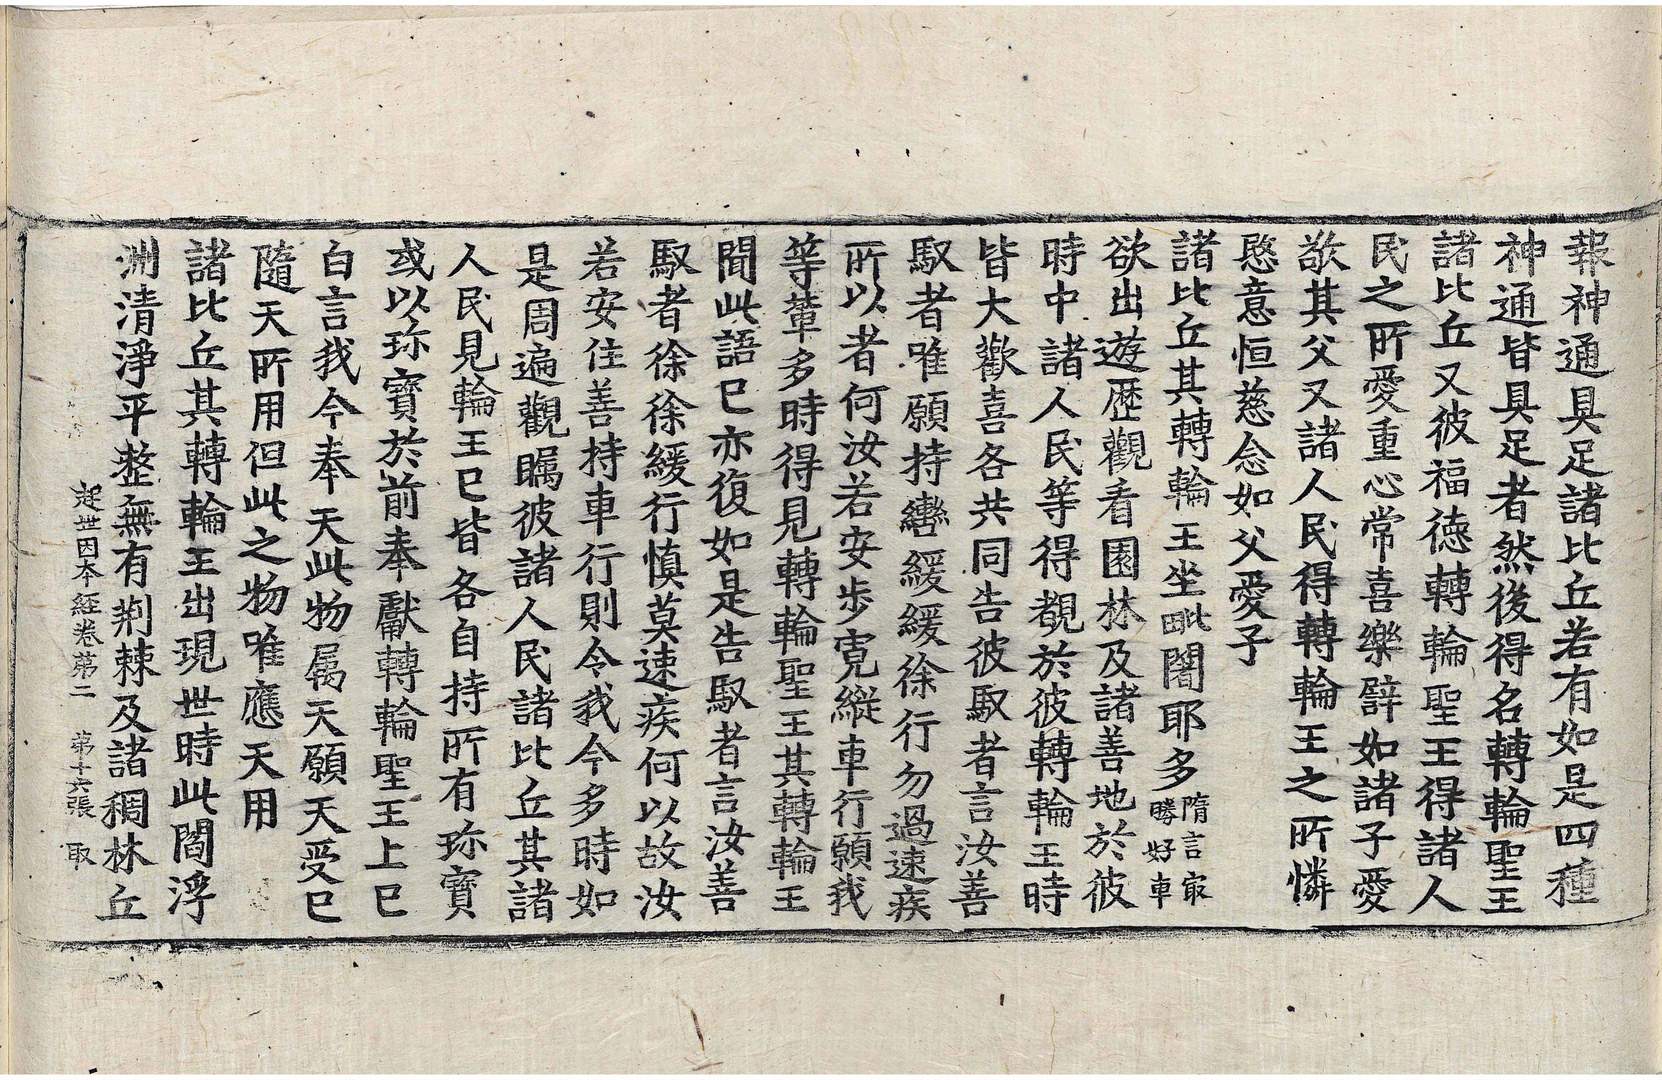 報神通具足諸比丘若有如是四種
神通皆具足者然後得名轉輪聖王
諸比丘又彼福德轉輪聖王得諸人
民之所愛重心常喜樂譬如諸子愛
敬其父又諸人民得轉輪王之所憐
愍意恒慈念如父愛子
諸比丘其轉輪王坐毗闍耶多隋言㝡勝好車
欲出遊歷觀看園林及諸善地於彼
時中諸人民等得覩於彼轉輪王時
皆大歡喜各共同告彼馭者言汝善
馭者唯願持轡緩緩徐行勿過速疾
所以者何汝若安步寬縱車行願我
等輩多時得見轉輪聖王其轉輪王
聞此語已亦復如是告馭者言汝善
馭者徐徐緩行慎莫速疾何以故汝
若安住善持車行則令我今多時如
是周遍觀瞩彼諸人民諸比丘其諸
人民見輪王已皆各自持所有珎寶
或以珎寶於前奉獻轉輪聖王上已
白言我今奉天此物属天願天受已
隨天所用但此之物唯應天用
諸比丘其轉輪王出現世時此閻浮
洲清淨平整無有荆棘及諸稠林丘
起世因本經卷第二 第十六張 取